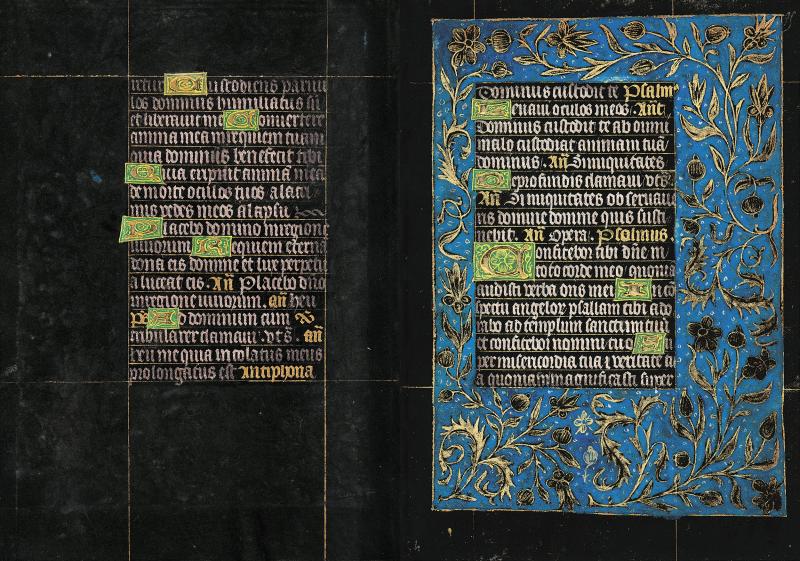 Custodiens parvu
los dominus humiliatus su
et liberavit me Convertere
anima mea in requiem tuam
quia dominus benefecit tibi
Quia eripuit anima mea
de morte oculos tuos a lacri
mis pedes meos a lapsu
Placebo domino in regione
vivorum Requiem eterna
dona eis domine et lux perpetu
a luceat eis An Placebo dno
in regione vivorum an heu
Ps Ad dominum cum
tribularer clamavi vts an
heu me quia incolatus meus
prolongatus est Antiphona
Dominus custodit te Psalm
Levavi oculos meos Ant
Dominus custodit te ab omni
malo custodiat animam tua
dominus An Si iniquitates
De profundis clamavi vts
An Si iniquitates observaue
ris domine domine quis susti
nebit An Opera Psalmus
Confitebor tibi dne in
toto corde meo quonia
audisti verba oris mei In co
spectu angelor psallam tibi ado
rabo ad templum sanctum tuu
et confitebor nomini tuo
per misericordia tua et veritate
a quoniam magnificasti super